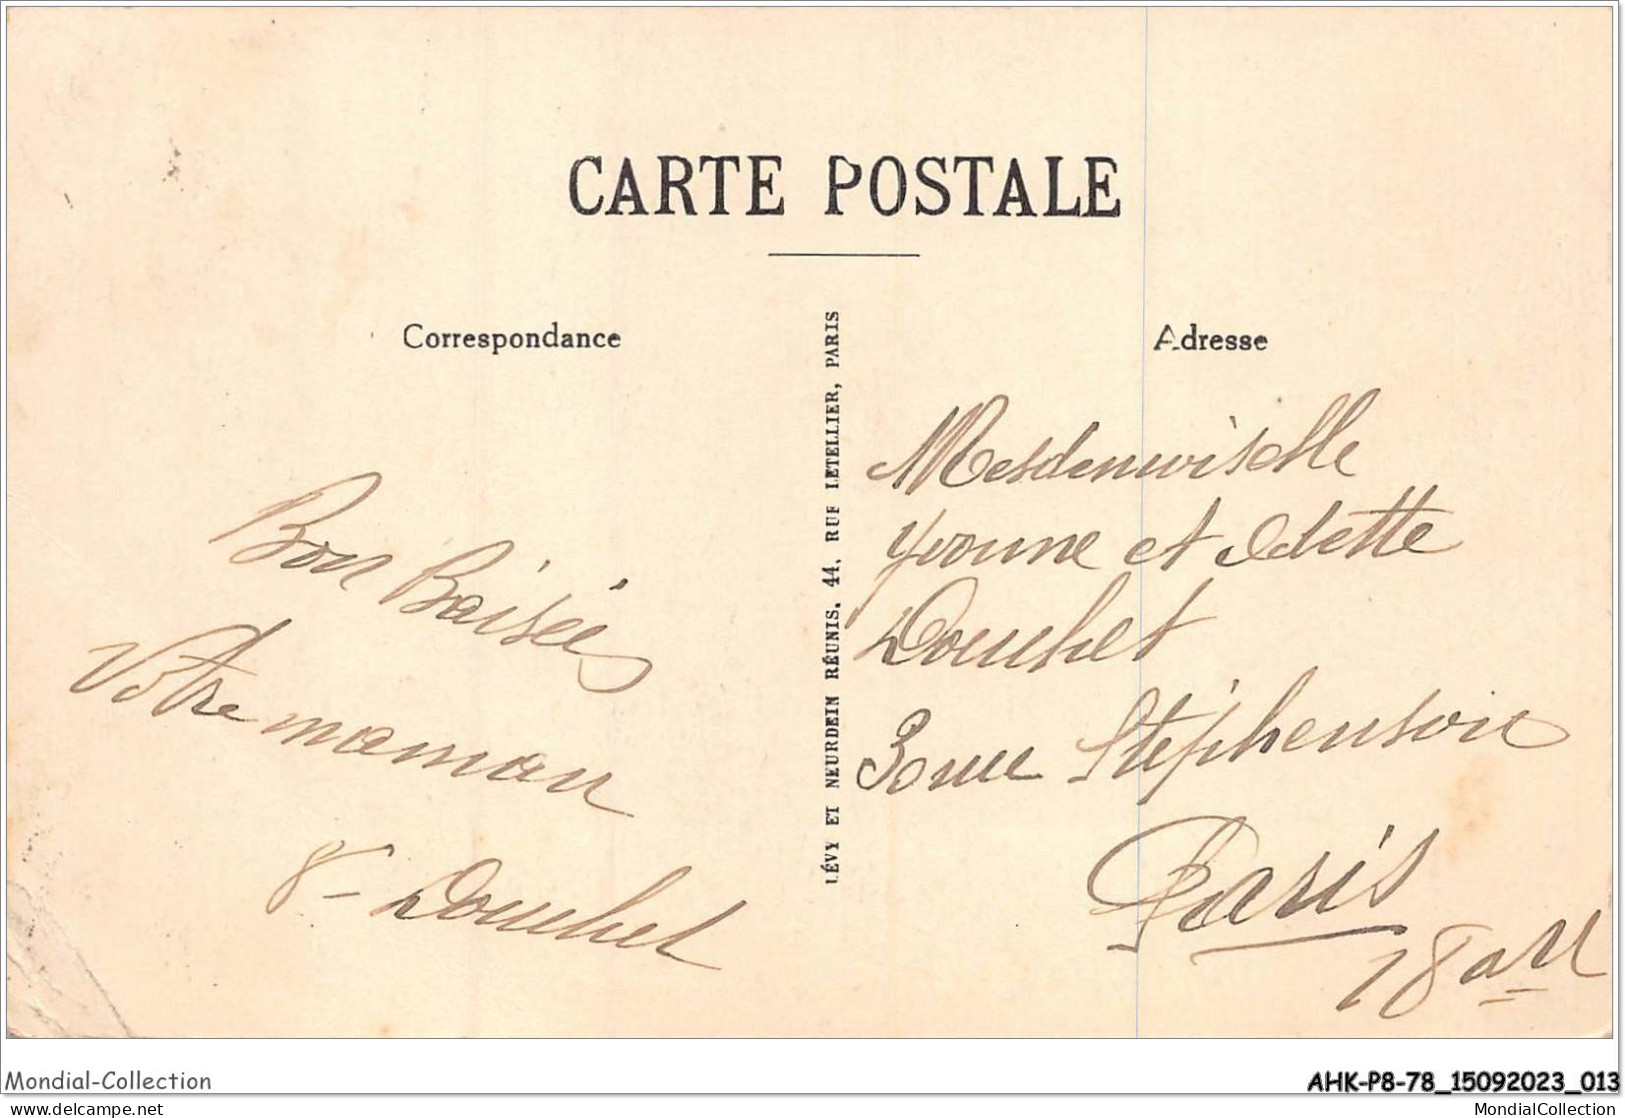 CARTE POSTALE
Correspondance
Adresse
LÉVY ET NEURDEIN RÉUNIS, 44, RUE LETELLIER, PARIS
Bon Baisées
Votre maman
Douchet
Mesdemoiselle
Yvonne et Odette
Douchet
30 rue Stéphenson
Paris
18 arr
Mondial-Collection
AHK-P8-78_15092023_013
delcampe.net
MondialCollection